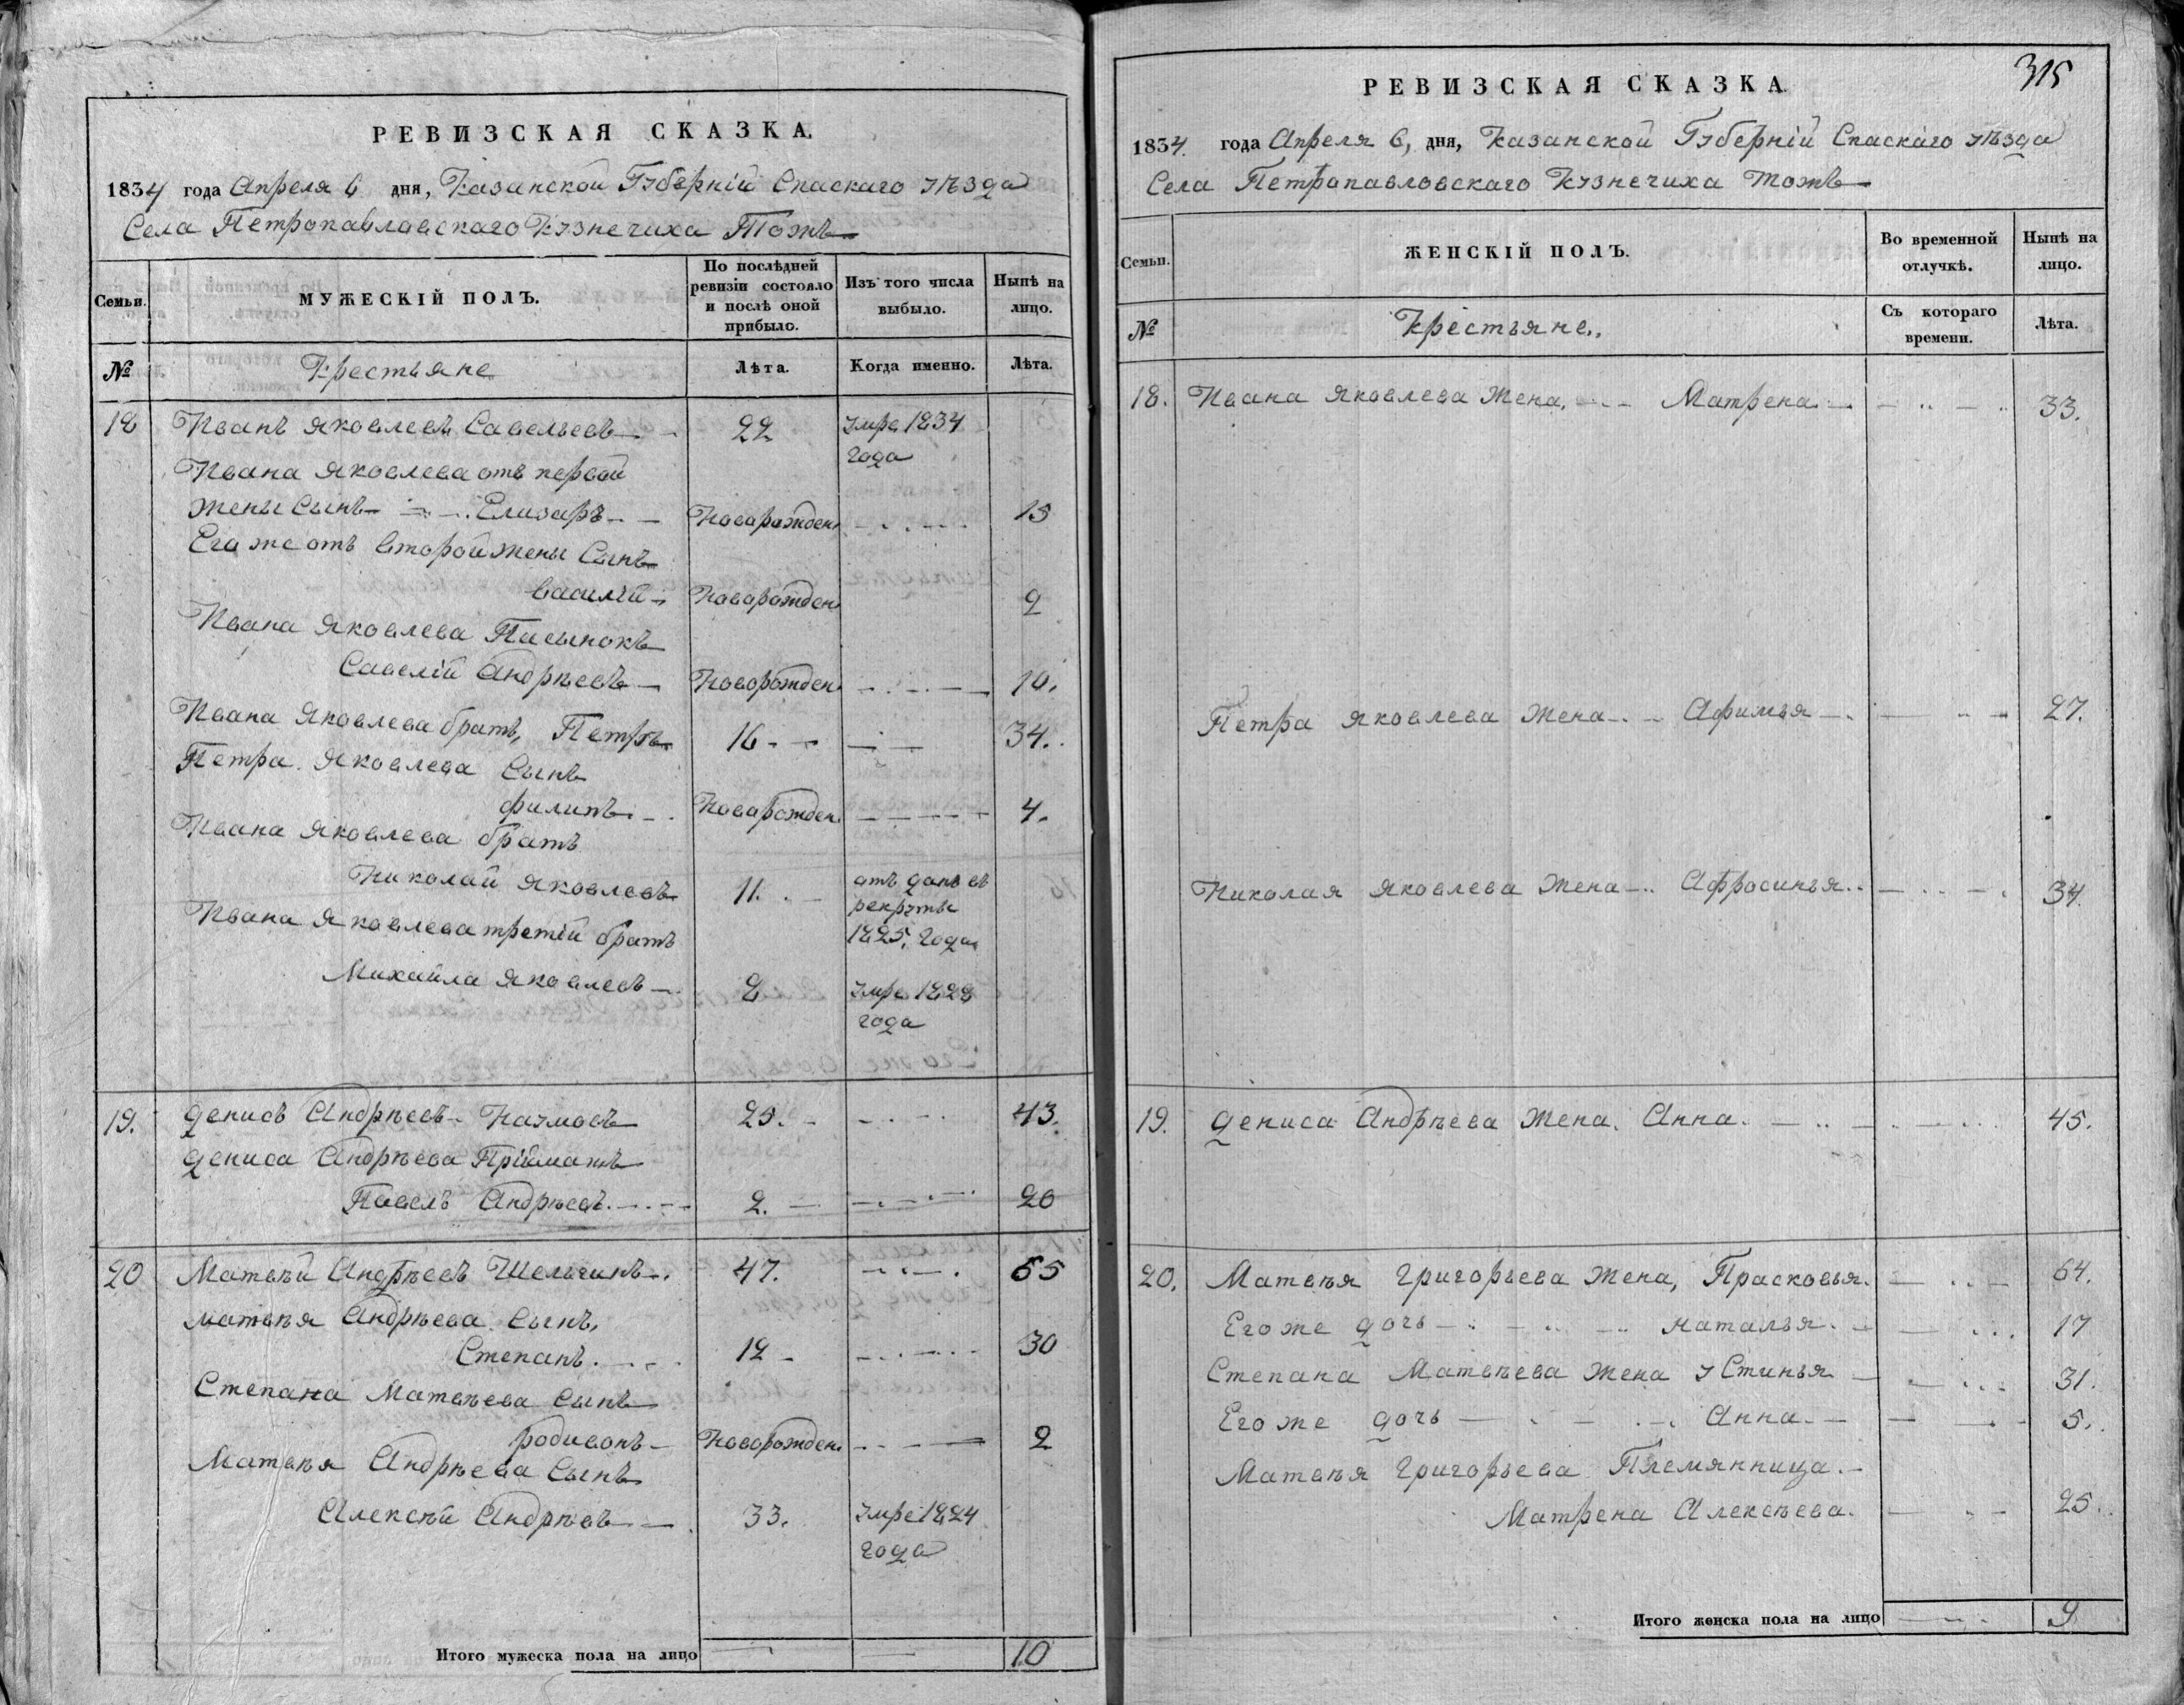 РЕВИЗСКАЯ СКАЗКА.
1834 года Апреля 6 дня, Казанской Губерніи Спаскаго уѣзда
Села Петропавловскаго Кузнечиха Тожъ
Семьи.
МУЖЕСКІЙ ПОЛЪ.
По послѣдней ревизіи состояло и послѣ оной прибыло.
Изъ того числа выбыло.
Нынѣ на лицо.
№
Крестьяне
Лѣта.
Когда именно.
Лѣта.
18 Иванъ Яковлевъ Савельевъ 22 умре 1834
года
Ивана Яковлева отъ первой
жены сынъ Елизаръ Новорожден 15
Его же отъ второй жены сынъ
василій Новорожден 2
Ивана Яковлева Пасынокъ
Савелій Андрѣевъ Новорожден 10.
Ивана Яковлева братъ, Петръ 16 34.
Петра Яковлева Сынъ
филипъ Новорожден 4.
Ивана Яковлева братъ
Николай Яковлевъ 11. отъ данъ въ
рекруты
1825, года
Ивана Яковлева третій братъ
Михайла Яковлевъ 8 умре 1828
года
19. Денисъ Андрѣевъ Наумовъ 25. 43.
Дениса Андрѣева Пріймашъ
Павелъ Андрѣевъ 2. 20
20 Матвѣй Андрѣевъ Шельгинъ 47. 65
матвѣя Андрѣева Сынъ,
Степанъ 12 30
Степана Матвѣева сынъ
родивонъ Новорожден 2
Матвѣя Андрѣева Сынъ
Алексѣй Андрѣевъ 33. Умре 1824
года
Итого мужеска пола на лицо 10
315
РЕВИЗСКАЯ СКАЗКА.
1834. года Апреля 6, дня, Казанской Губерніи Спаскаго уѣзда
Села Петропавловскаго Кузнечиха тожъ
Семьи.
ЖЕНСКІЙ ПОЛЪ.
Во временной отлучкѣ.
Нынѣ на лицо.
№
Крестьяне.
Съ котораго времени.
Лѣта.
18. Ивана Яковлева Жена, Матрена 33.
Петра Яковлева Жена Афимья 27.
Николая Яковлева Жена Афросинья 34.
19. Дениса Андрѣева Жена. Анна 45.
20. Матвѣя Григорьева Жена, Прасковья. 64.
Его же дочь Наталья 17
Степана Матвѣева Жена устинья 31.
Его же дочь Анна 5.
Матвѣя Григорьева Племянница.
Матрена Алексѣева. 25.
Итого женска пола на лицо 9